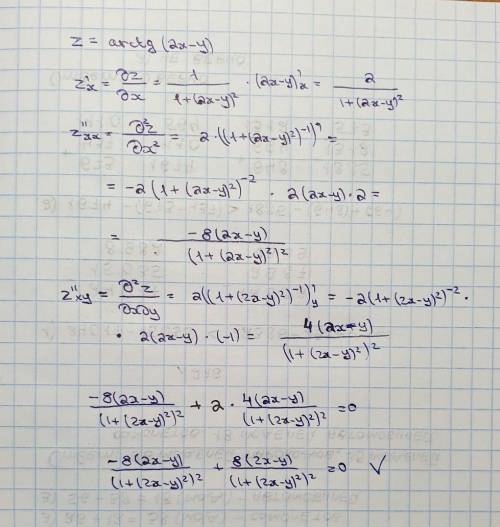 z = arctg (2x-y)
z'x = ∂z/∂x = 1/(1+(2x-y)²) · (2x-y)'x = 2/(1+(2x-y)²)
z''xx = ∂²z/∂x² = 2·((1+(2x-y)²)⁻¹)' =
= -2(1+(2x-y)²)⁻² · 2(2x-y)·2 =
= -8(2x-y)/(1+(2x-y)²)²
z''xy = ∂²z/∂x∂y = 2((1+(2x-y)²)⁻¹)'y = -2(1+(2x-y)²)⁻² ·
· 2(2x-y)·(-1) = 4(2x-y)/(1+(2x-y)²)²
-8(2x-y)/(1+(2x-y)²)² + 2 · 4(2x-y)/(1+(2x-y)²)² =0
-8(2x-y)/(1+(2x-y)²)² + 8(2x-y)/(1+(2x-y)²)² =0 ✓